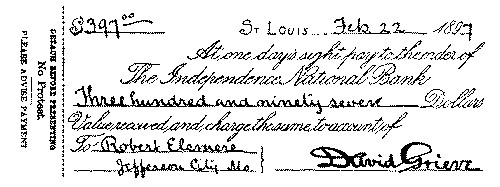 DETACH BEFORE PRESENTING
No Protest.
PLEASE ADVISE PAYMENT
$397.00 St Louis Feb. 22 1897
At one day's sight, pay to the order of
The Independence National Bank
Three hundred and ninety seven Dollars
Value received and charge the same to account of
To Robert Elsmere
Jefferson City Mo.
David Grieve